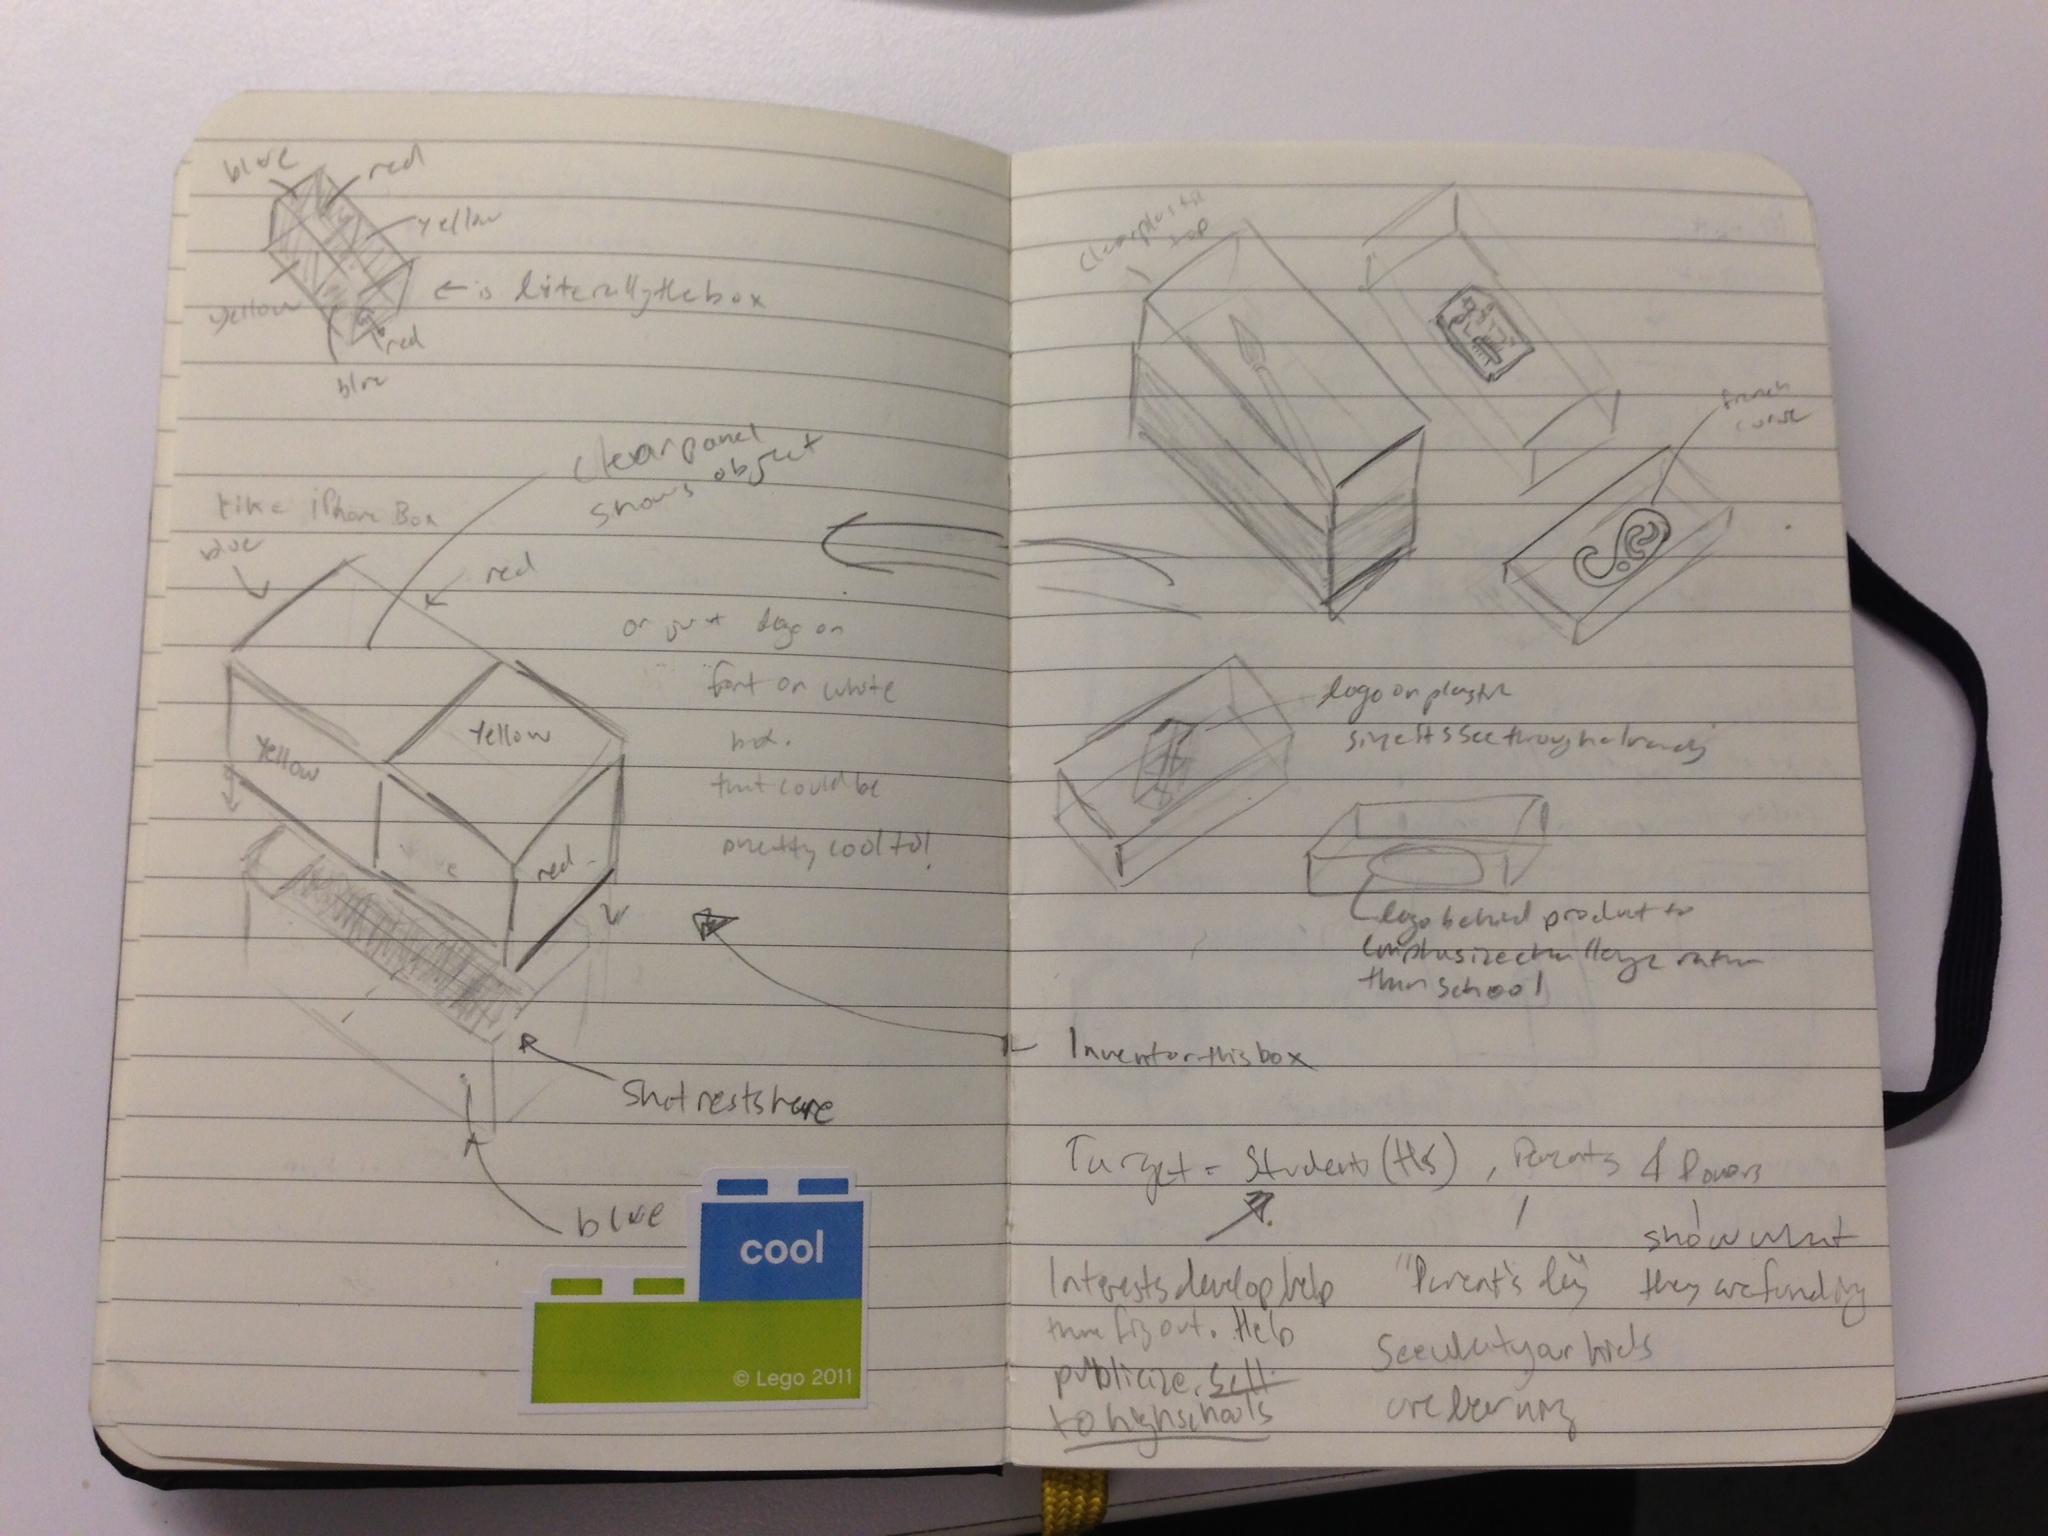 blue
red
yellow
yellow
red
blue
← is literally the box
clear panel
shows object
Like iPhone Box
blue
red
or just logo on
font on white
box.
that could be
pretty cool too!
Yellow
Yellow
blue
red
rests here
blue
cool
© Lego 2011
Clear plastic
top
french
curve
logo on plastic
since its see through already
logo behind product to
emphasize challenge rather
than school
this box
Target = Students (HS), Parents &
show what
they are funding
Interests develop, help
them fig out. Help
publicize. Sell
to highschools
"Parent's Day"
See what your kids
are learning